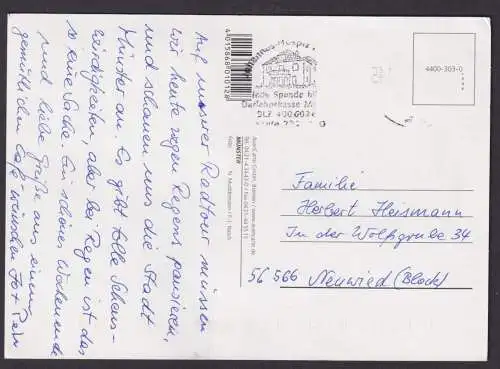 Auf unserer Radtour müssen
wir heute wegen Regens pausieren,
und schauen uns die Stadt
Münster an. Es gibt tolle Sehens-
würdigkeiten, aber bei Regen ist das
so eine Sache. Ein schönes Wochenende
und liebe Grüße aus einem
gemütlichen Café wünschen
4 015868 010128
MÜNSTER
Hospiz
Jede Spende hi
Darlehnskasse
BLZ 400 602
4400-303-0
Familie
Herbert Heismann
In der Wolfsgrube 34
56 566 Neuwied (Block)